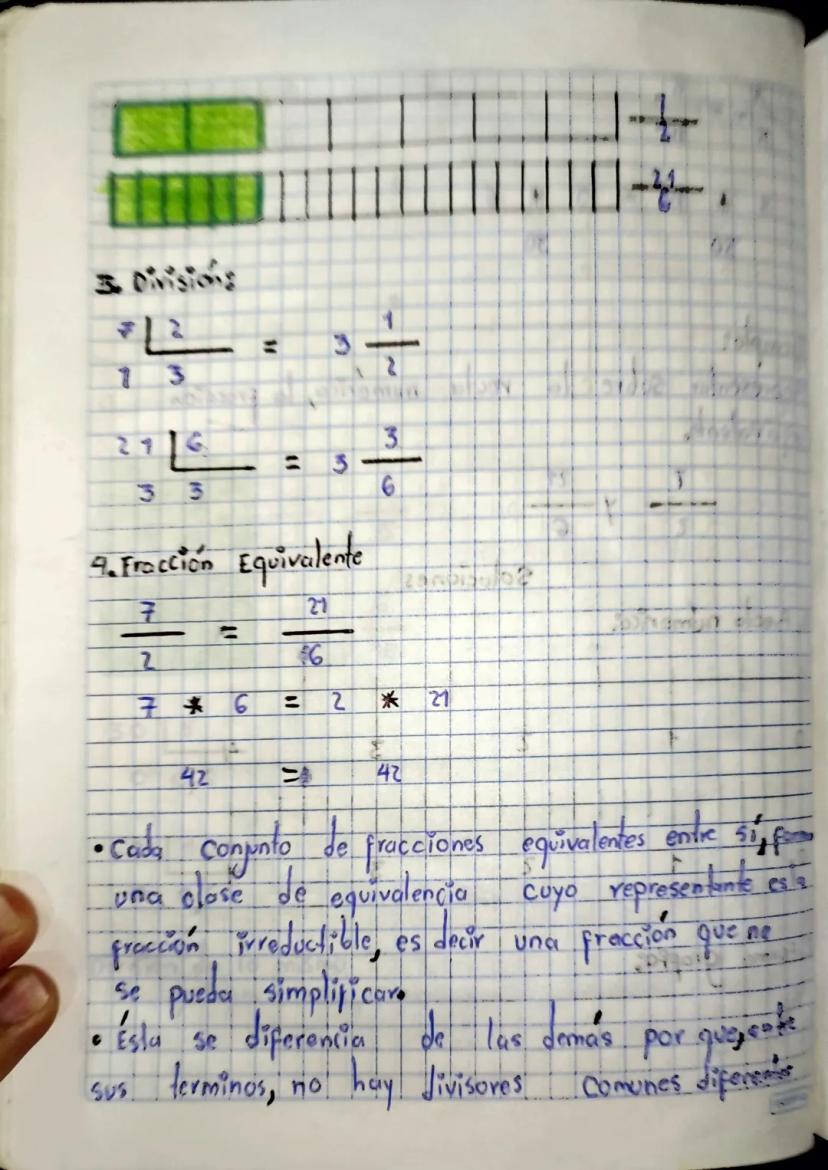 7/2
21/6
3. Divisións
7 | 2 = 3 1/2
1 3
21 | 6 = 3 3/6
3 3
4. Fracción Equivalente
7/2 = 21/6
7 * 6 = 2 * 21
42 = 42
• Cada conjunto de fracciones equivalentes entre sí, forma
una clase de equivalencia cuyo representante es la
fracción irreductible, es decir una fracción que no
se pueda simplificar.
• Ésta se diferencia de las demás por que, entre
sus terminos, no hay divisores comunes diferentes